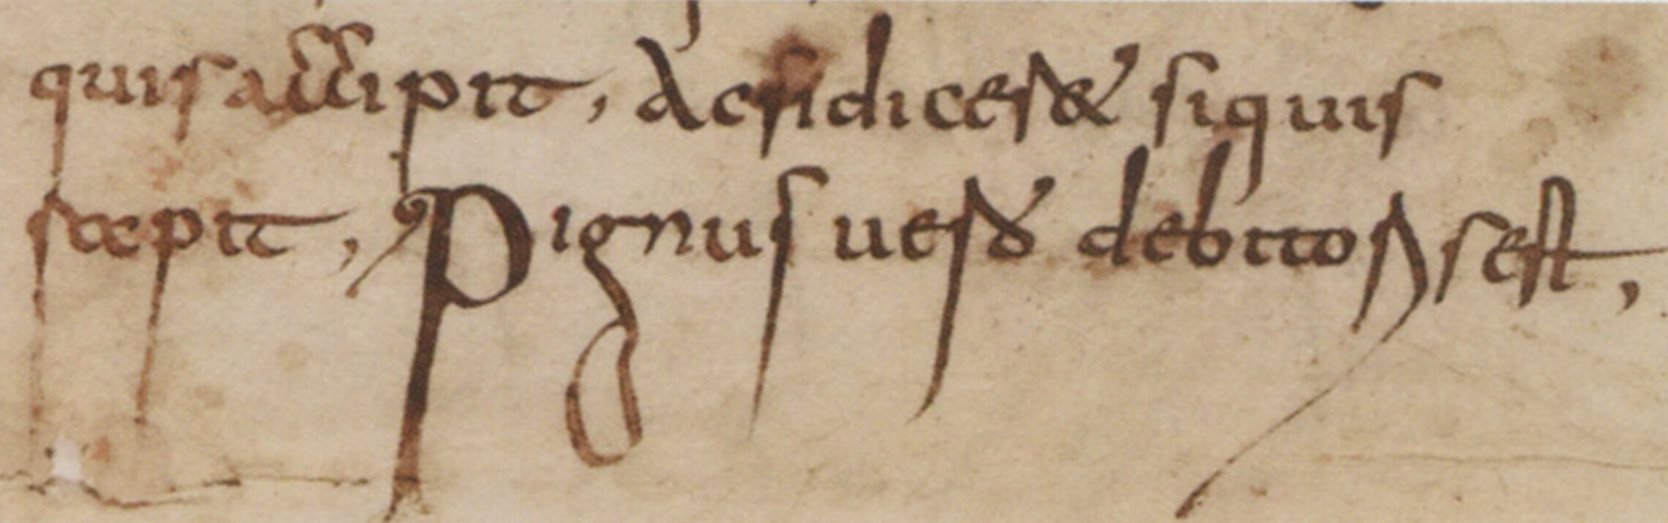 quis accipit, Acsidicer& siquis
scepit, Pignus uero debitoris est,